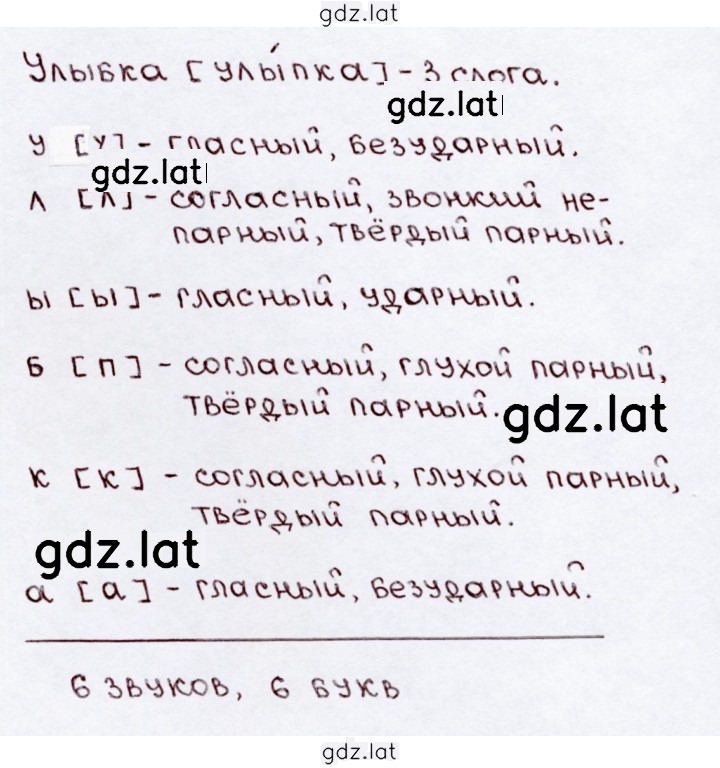 gdz.lat
Улыбка [улы́пка] - 3 слога.
gdz.lat
у [у] - гласный, безударный.
gdz.lat
л [л] - согласный, звонкий не-
парный, твёрдый парный.
ы [ы] - гласный, ударный.
б [п] - согласный, глухой парный,
твёрдый парный.
gdz.lat
к [к] - согласный, глухой парный,
твёрдый парный.
gdz.lat
а [а] - гласный, безударный.
6 звуков, 6 букв
gdz.lat